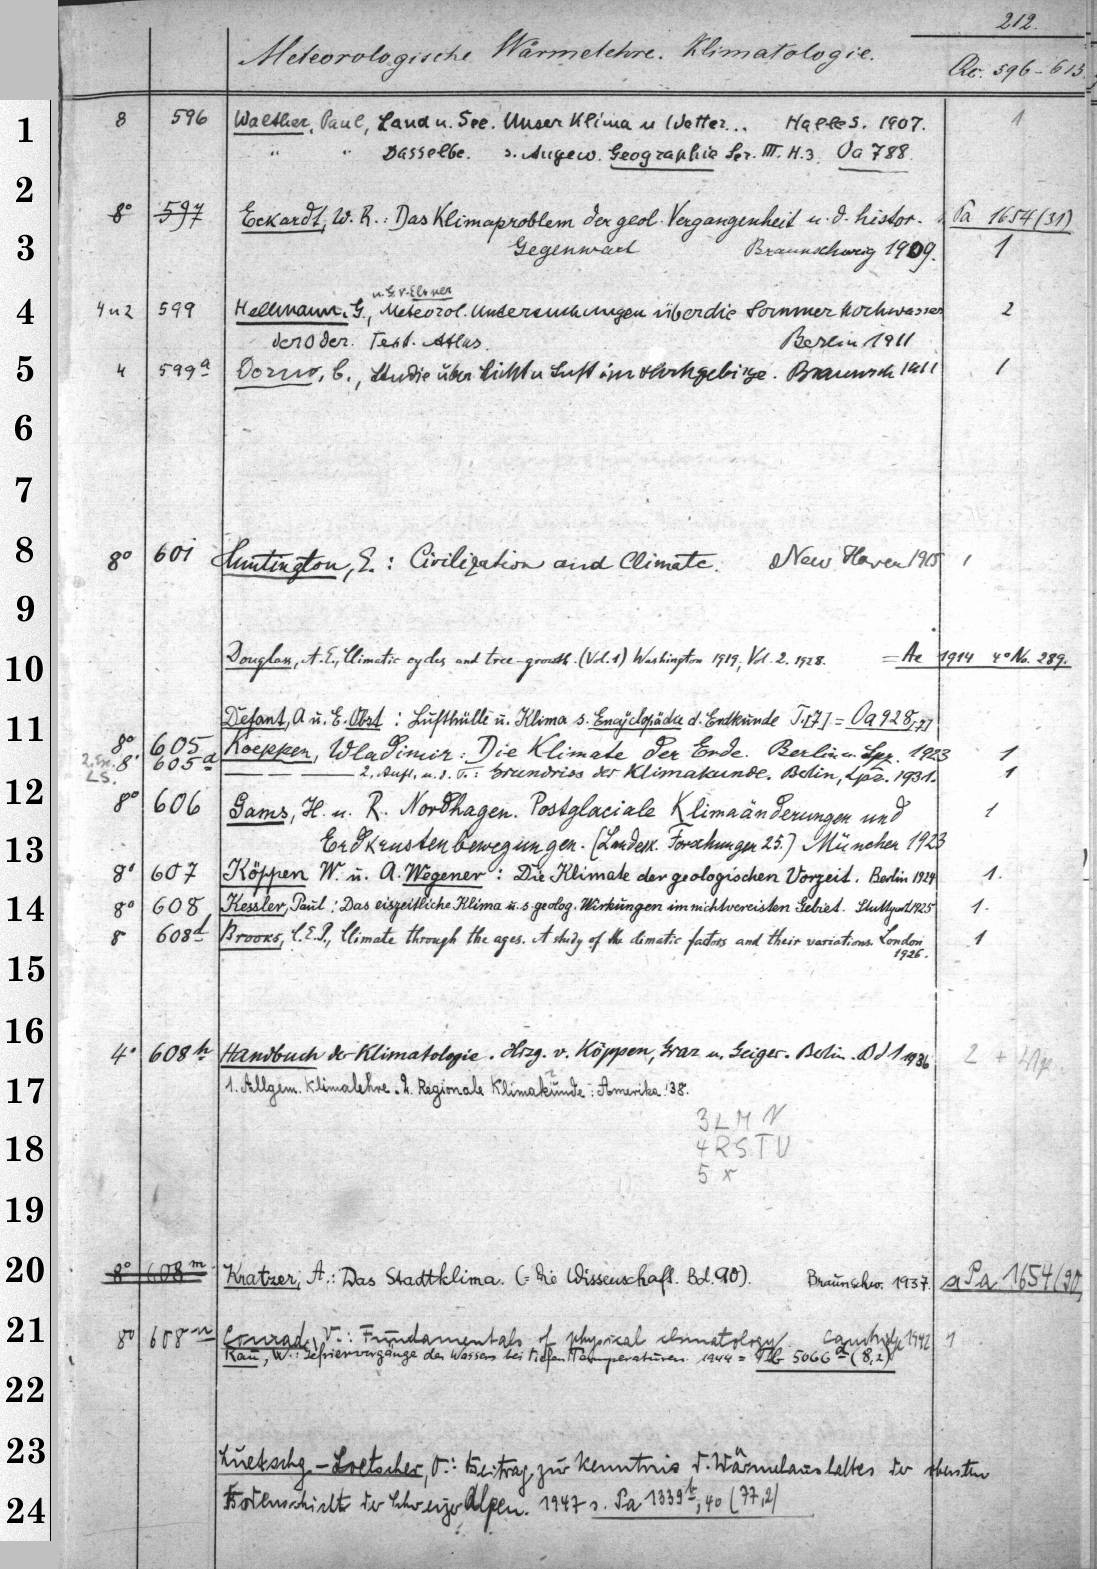 212.
Meteorologische Wärmelehre. Klimatologie.
Qc. 596-613
1 8 596 Walther, Paul, Land u. See. Unser Klima u Wetter... Halle S. 1907. 1
" " Dasselbe. s. Angew. Geographie Ser. III. H.3. Oa 788.
2
8° 597 Eckardt, W. R.: Das Klimaproblem der geol. Vergangenheit u. d. histor. Pa 1654 (31)
3 Gegenwart Braunschweig 1909. 1
u. G. v. Elsner
4 4 u 2 599 Hellmann, G., Meteorol. Untersuchungen über die Sommerhochwasser 2
der Oder. Text. Atlas. Berlin 1911
5 4 599a Dorno, C., Studie über Licht u Luft im Hochgebirge. Braunsch 1911 1
6
7
8 8° 601 Huntington, E.: Civilization and Climate. New Haven 1915 1
9
10 Douglass, A. E., Climatic cycles and tree-growth. (Vol. 1) Washington 1919, Vol. 2. 1928. = Ae 1914 4° No. 289.
11 Defant, A u. E. Obst: Lufthülle u. Klima s. Encyclopädie d. Erdkunde T. [7] = Oa 928,[7]
8° 605 Koeppen, Wladimir: Die Klimate der Erde. Berlin u. Lpz. 1923 1
2. Ex. LS. 8° 605a — — — 2. Aufl. u. d. T.: Grundriss der Klimakunde. Berlin, Lpz. 1931. 1
12 8° 606 Gams, H. u. R. Nordhagen. Postglaciale Klimaänderungen und 1
13 Erdkrustenbewegungen. (Landesk. Forschungen 25.) München 1923
8° 607 Köppen W. u. A. Wegener: Die Klimate der geologischen Vorzeit. Berlin 1924 1.
14 8° 608 Kessler, Paul: Das eiszeitliche Klima u. s. geolog. Wirkungen im nicht vereisten Gebiet. Stuttgart 1925 1.
8 608d Brooks, C.E.P., Climate through the ages. A study of the climatic factors and their variations. London 1
1926.
15
16 4° 608h Handbuch der Klimatologie. Hrzg. v. Köppen, Graz u. Geiger. Berlin. Bd 1 1936 2 +
17 1. Allgem. Klimalehre. 2. Regionale Klimakunde: Amerika '38.
3 L M N
18 4 R S T U
5 x
19
20 8° 608m Kratzer, A.: Das Stadtklima. (= Die Wissenschaft. Bd. 90). Braunschw. 1937. s Pa 1654 (90)
21 8° 608n Conrad, V.: Fundamentals of physical climatology. Cambridge 1942 1
Rau, W.: Gefriervorgänge des Wassers bei tiefen Temperaturen. 1944 = 5066a (8,2)
22
23 Luetschg-Loetscher, O.: Beitrag zur Kenntnis d. Wärmehaushaltes der obersten
24 Bodenschicht der Schweizer Alpen. 1947 s. Pa 1339k, 40 (77,2)